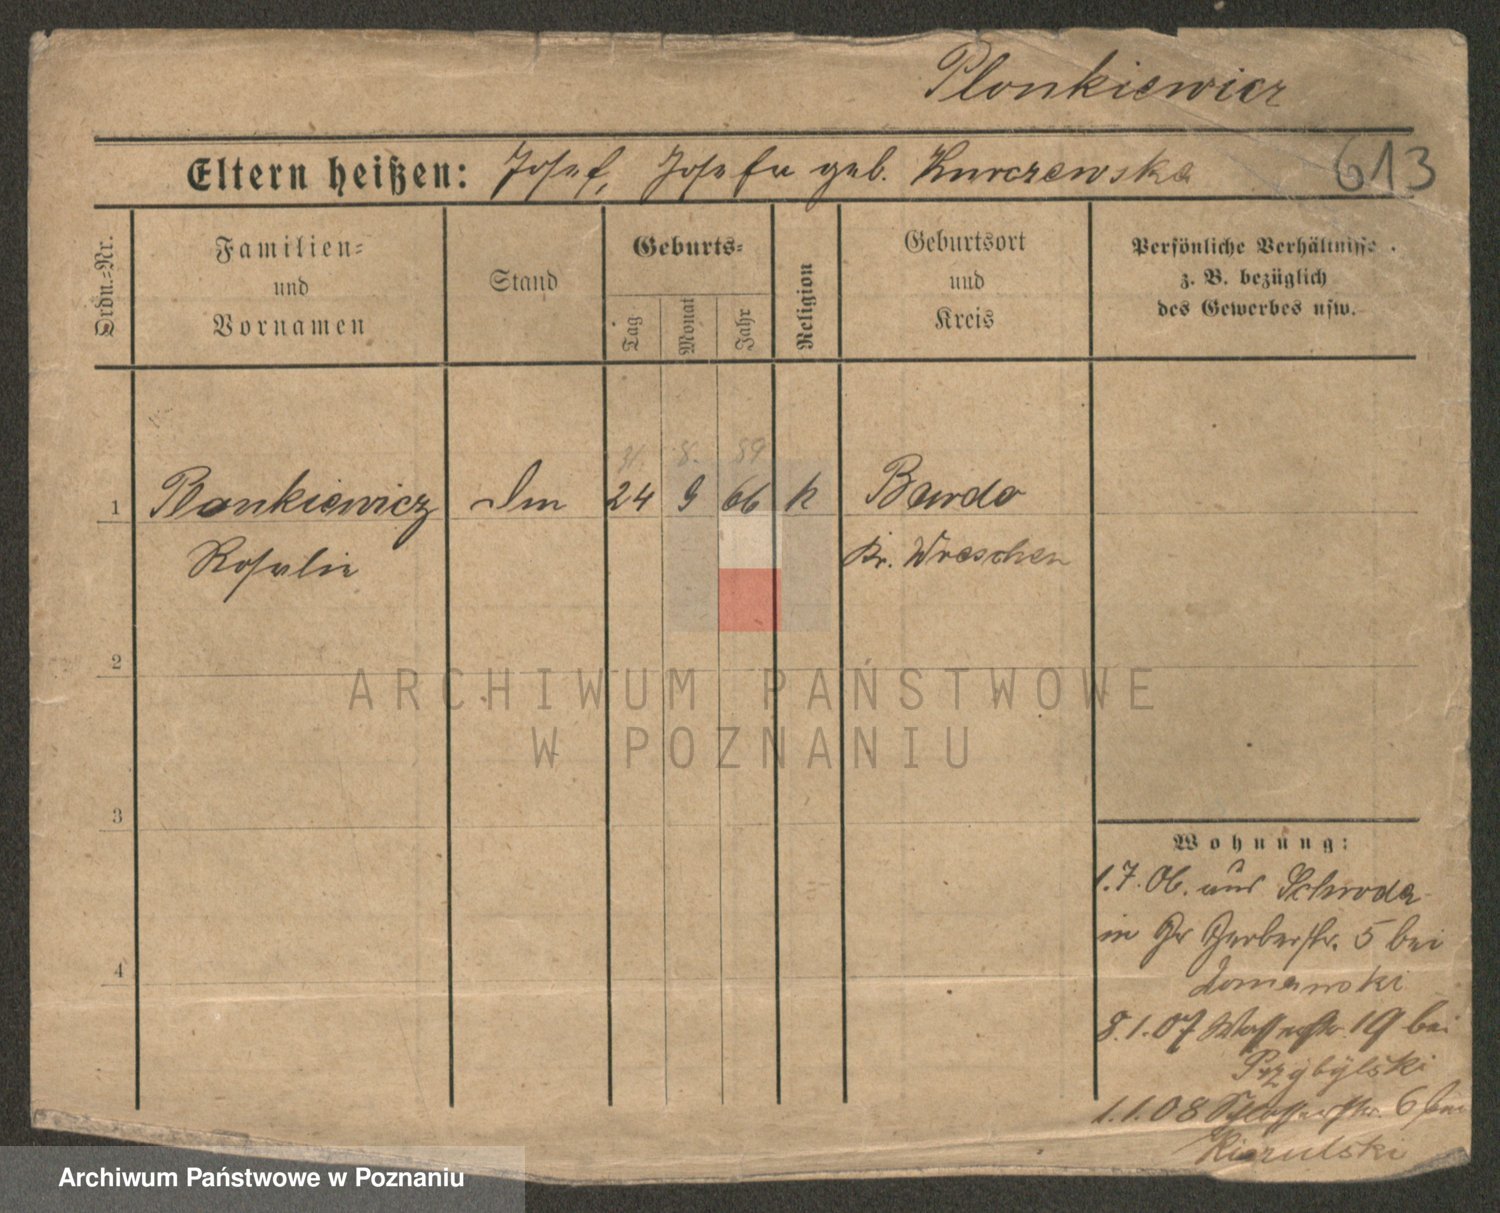 Plonkiewicz
Eltern heißen: Josef, Josefa geb. Kurczewska 613
Ordn.-Nr.
Familien-
und
Vornamen
Stand
Geburts-
Tag
Monat
Jahr
Religion
Geburtsort
und
Kreis
Persönliche Verhältnisse
z. B. bezüglich
des Gewerbes usw.
8. 59
1 Plonkiewicz 24 9 66 k Bardo
Rosalie Kr. Wreschen
2
ARCHIWUM PAŃSTWOWE
W POZNANIU
3
Wohnung:
1.7.06. aus Schroda
in Gr Gerberstr. 5 bei
Tomanski
4
8.1.07 Wasserstr. 19 bei
Przybylski
1.1.08 Schlosserstr. 6 bei
Kierulski
Archiwum Państwowe w Poznaniu